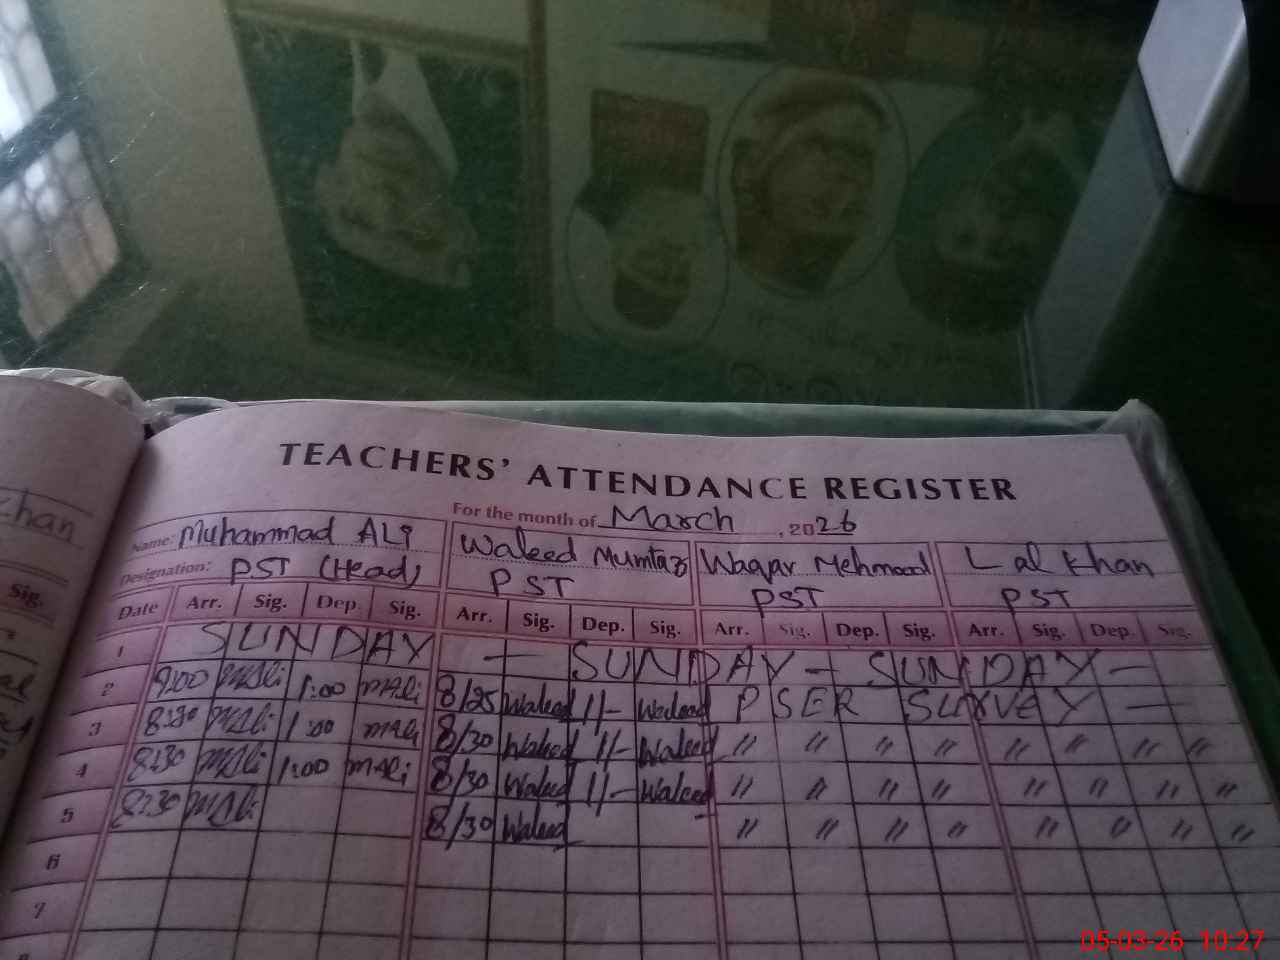 TEACHERS' ATTENDANCE REGISTER
For the month of March, 2026
Name: Muhammad ALi Waleed Mumtaz Waqar Mehmood Lal Khan
Designation: PST (Head) PST PST PST
Date Arr. Sig. Dep. Sig. Arr. Sig. Dep. Sig. Arr. Sig. Dep. Sig. Arr. Sig. Dep. Sig.
1 SUNDAY — SUNDAY — SUNDAY —
2 9:00 MAli 1:00 MAli 8/25 Waleed 1/- Waleed PSER SURVEY —
3 8:30 MAli 1:00 MAli 8/30 Waleed 1/- Waleed " " " " " " " "
4 8:30 MAli 1:00 MALi 8/30 Waleed 1/- Waleed " " " " " " " "
5 8:30 MAli 8/30 Waleed " " " " " " " "
6
7
8
khan
Sig.
05-03-26 10:27